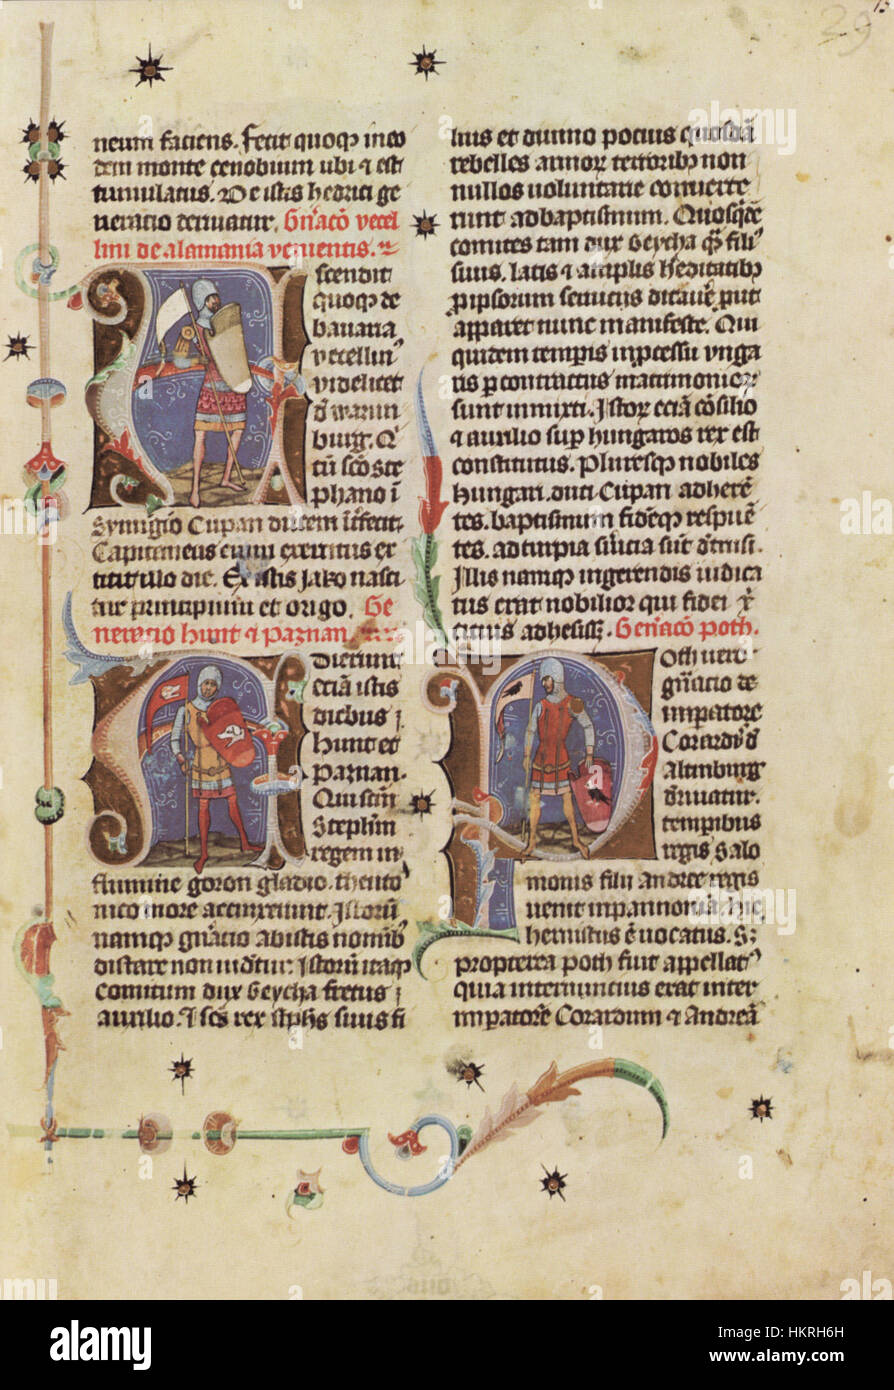 15
29
neum faciens. Fecit quoqꝫ in eo
dem monte cenobium ubi ⁊ est
tumulatus. De istis hedrici ge
neracio deriuatur. Gñacō vecel
lini de alamania venientis.
Ascendit
quoqꝫ de
bauaria
vecellin᾽
videlicet
đ warin
burg. Q̾
tū scō ste
phano ī
Symigio Cupan ducem īt̾fecit.
Capitaneus enim exercitus ex
titit illo die. Ex istis Jako nasci
tur principium et origo. Ge
neracio hunt ⁊ Paznan.
Uenerunt
eciā istis
diebus
hunt et
Paznan.
Qui scm̄
Stephm̄
regem in
flumine goron gladio theuto
nico more accinxerunt. Istorū
namqꝫ gñacio ab istis nominibꝫ
distare non uidetur. Istorū itaqꝫ
comitum dux Geycha fretus
auxilio. ⁊ scs̄ rex stph̄s suus fi
lius et diuino pocius quosdā
rebelles armorꝝ terroribꝫ non
nullos voluntarie conuerte
runt ad baptismum. Quos qđē
comites tam dux Geycha q̄ fili᾽
suus. latis ⁊ amplis hereditatibꝫ
ꝓ ipsorum seruiciis ditauer̄t put
apparet nunc manifeste. Qui
quidem tempis in ꝓcessu vnga
ris ꝑ contractus matrimoniorꝝ
sunt inmixti. Istorꝝ eciā cōsilio
⁊ auxilio sup̄ hungaros rex est
constitutus. Pluresqꝫ nobiles
hungari. duci Cupan adheren̄
tes. baptismum fidēqꝫ respuē
tes. ad turpia ẜuicia sūt đtrusi.
Illis namqꝫ ingerendis iudica
tus erat nobilior qui fidei xp̄i
citius adhesisꝫ. Geñacō poth.
Poth uero
gñacio de
imperatore
Corardū đ
Altinburg
đriuatur.
temporibus
regis Salo
monis filii Andree regis
venit in pannoniā. hic
hernistus ē vocatus. Sꝫ
propterea poth fuit appellat᾽
quia internuncius erat inter
imperatorē Corardum ⁊ Andreā
alamy
Image ID: HKRH6H
www.alamy.com